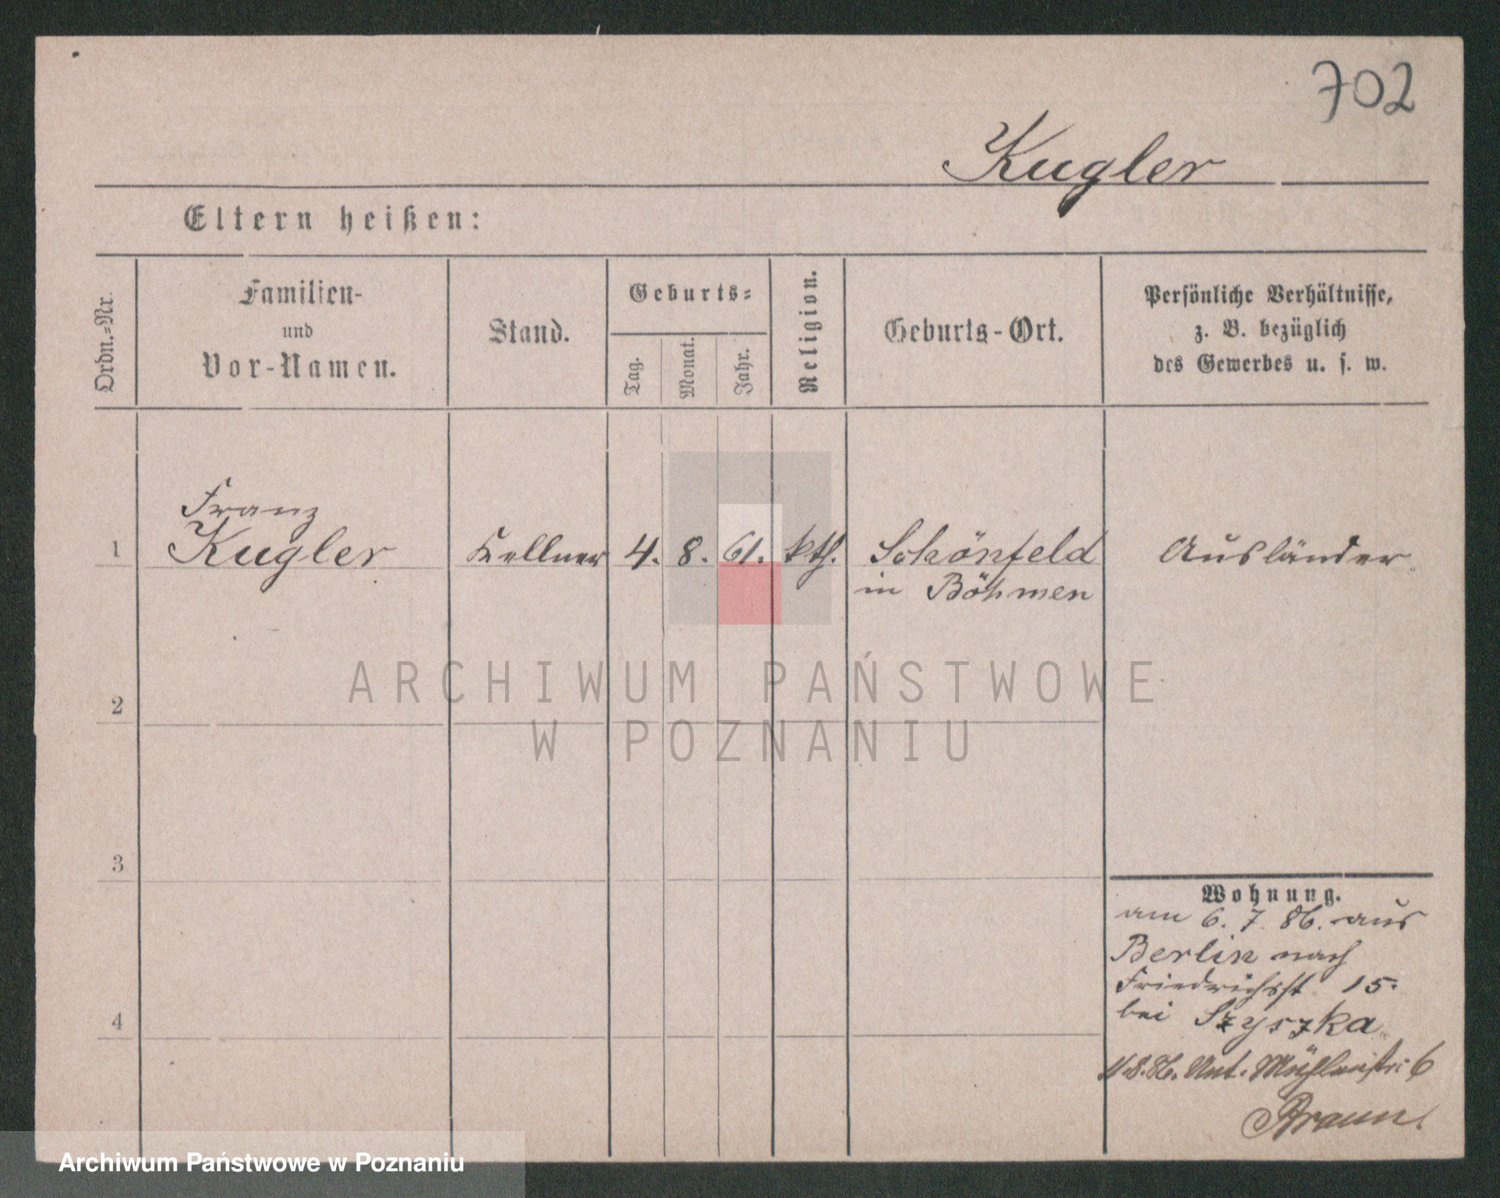 702
Kugler
Eltern heißen:
Ordn.-Nr.
Familien-
und
Vor-Namen.
Stand.
Geburts-
Tag.
Monat.
Jahr.
Religion.
Geburts-Ort.
Persönliche Verhältnisse,
z. B. bezüglich
des Gewerbes u. s. w.
Franz
1 Kugler Kellner 4. 8. 61. kth. Schönfeld Ausländer
in Böhmen
ARCHIWUM PAŃSTWOWE
W POZNANIU
2
3
4
Wohnung.
am 6. 7. 86. aus
Berlin nach
Friedrichsst 15.
bei Szyszka
11.8.86. Unt. Mühlenstr: 6
Braun.
Archiwum Państwowe w Poznaniu